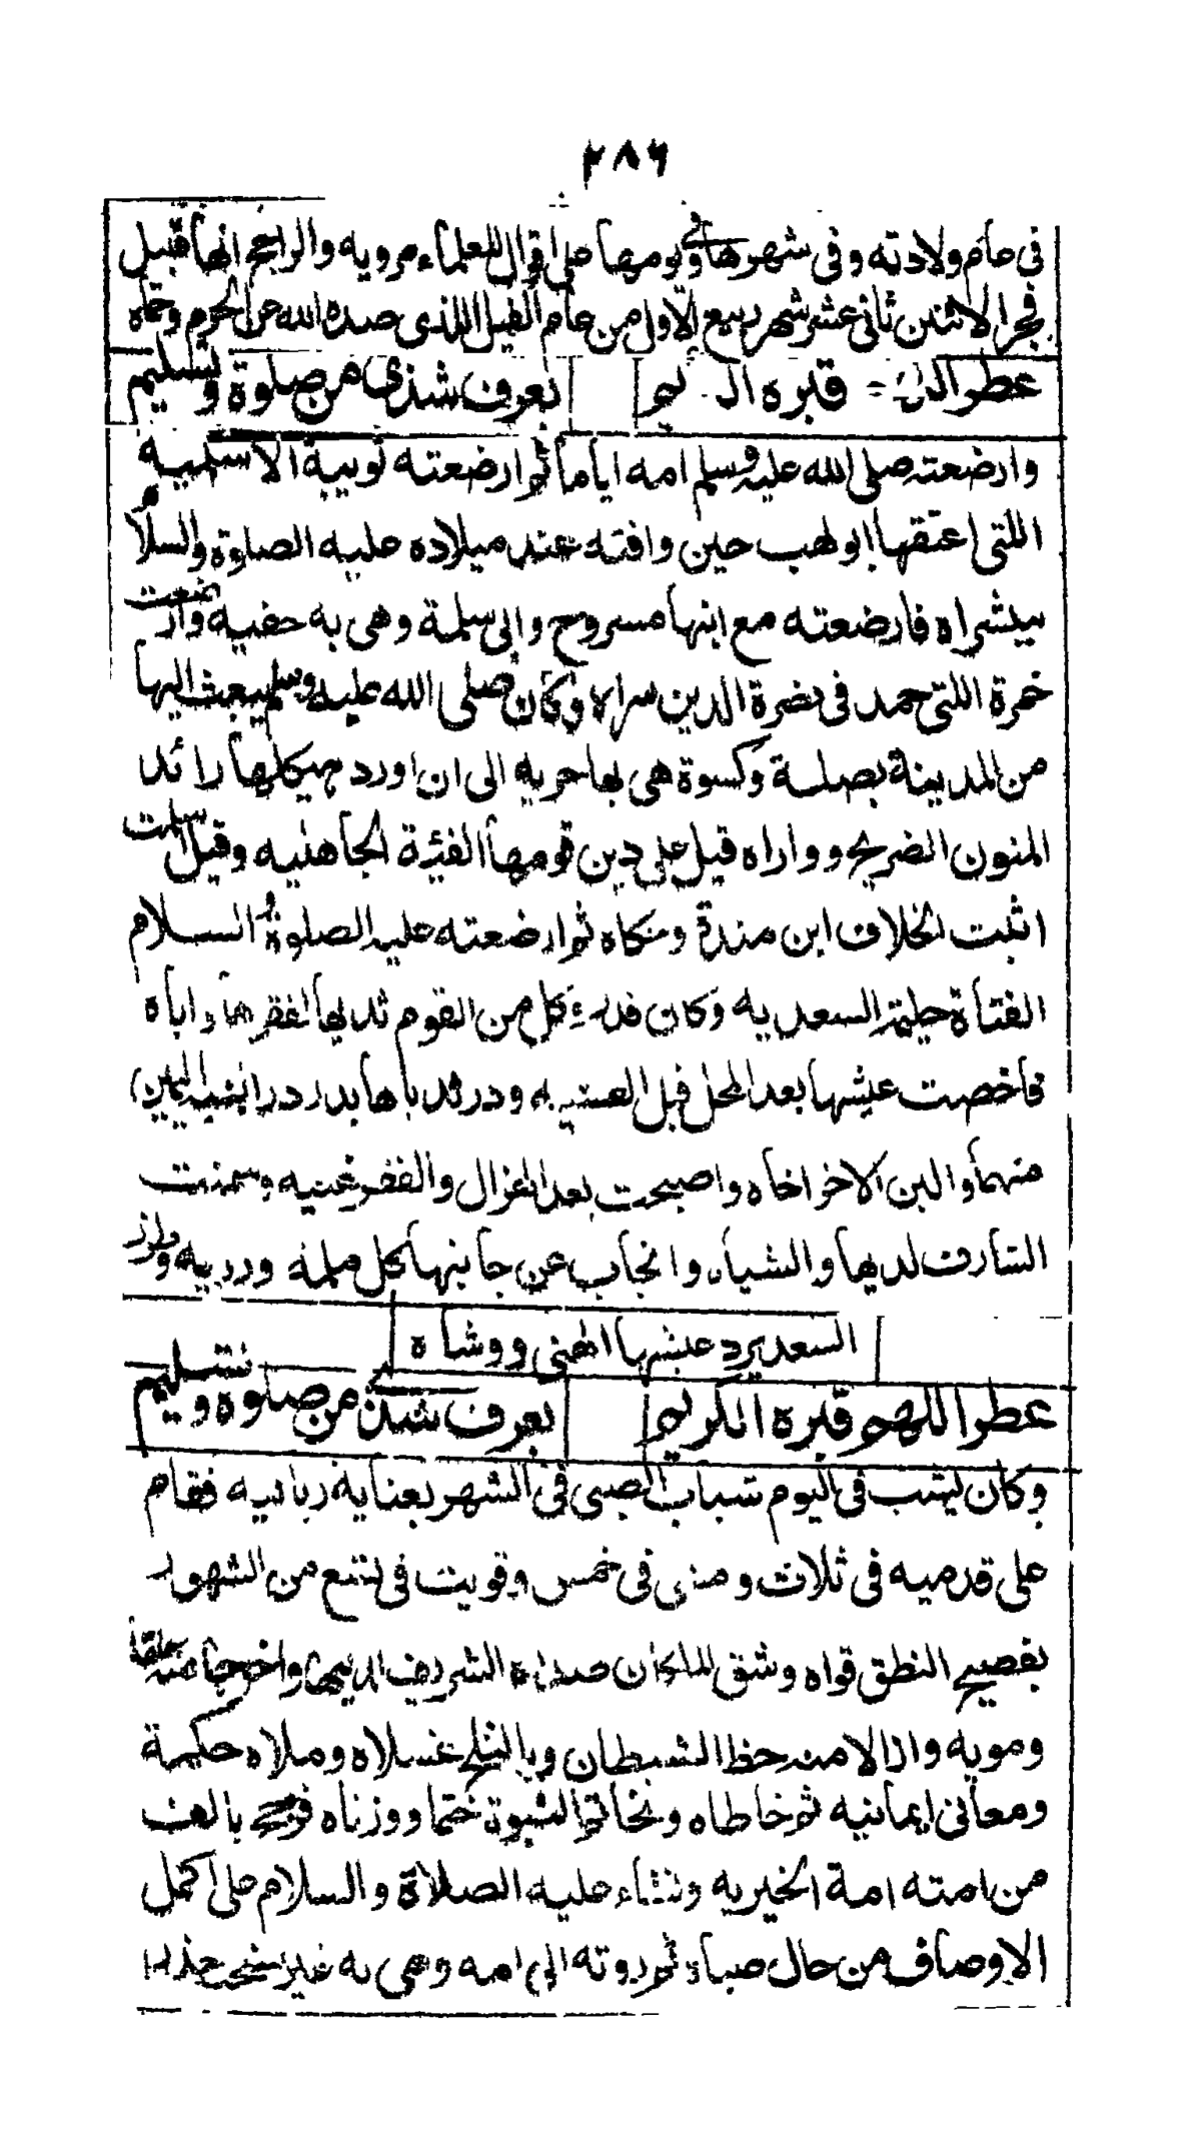 ٢٨٦
في عام ولادته وفى شهرها وفي يومها على اقوال للعلماء مرويه والراجح انها قبيل
فجر الاثنين ثانى عشر شهر ربيع الاول من عام الفيل الذى صده الله عن الحرم وحماه
عطر قبره بعرف شذى من صلوة وتسليم
وارضعته صلى الله عليه وسلم امه اياما ثم ارضعته ثويبة الاسلمية
اللتى اعتقها ابو لهب حين وافته عند ميلاده عليه الصلوة والسلام
ببشراه فارضعته مع ابنها مسروح وابى سلمة وهى به حفيه وارضعت
حمزة اللتى حمد فى نصرة الدين سراه وكان صلى الله عليه وسلم يبعث اليها
من المدينة بصلة وكسوة هى بها حريه الى ان اورد هيكلها رائد
المنون الضريح وواراه قيل على دين قومها الفئة الجاهليه وقيل اسلمت
اثبت الخلاف ابن مندة وحكاه ثم ارضعته عليه الصلوة السلام
الفتاة حليمة السعديه وكان قد رد كل من القوم ثديها لفقرها واباه
فاخصبت عيشها بعد المحل قبل العشيه ودر ثدياها بدر در البنه اليمين
منهما والبن الاخر اخاه واصبحت بعد الهزال والفقر غنيه وسمنت
الشارف لديها والشياه وانجاب عن جانبها كل ملمة ورزيه وطرز
السعد برد عيشها الهني ووشاه
عطر اللهم قبره الكريم بعرف شذى من صلوة وتسليم
وكان يشب فى اليوم شباب الصبى فى الشهر بعناية ربانيه فقام
على قدميه فى ثلاث ومشى فى خمس وقويت فى تسع من الشهور
بفصيح النطق قواه وشق الملكان صدره الشريف لديها واخرجا منه علقة
دمويه وازالا منه حظ الشيطان وبالثلج غسلاه وملاه حكمة
ومعانى ايمانيه ثم خاطاه وبخاتم النبوة ختما ووزناه فرجح بالف
من امته امة الخيريه ونشاء عليه الصلاة والسلام على اكمل
الاوصاف من حال صباه ثم ردته الى امه وهى به غير سخيه حذرا